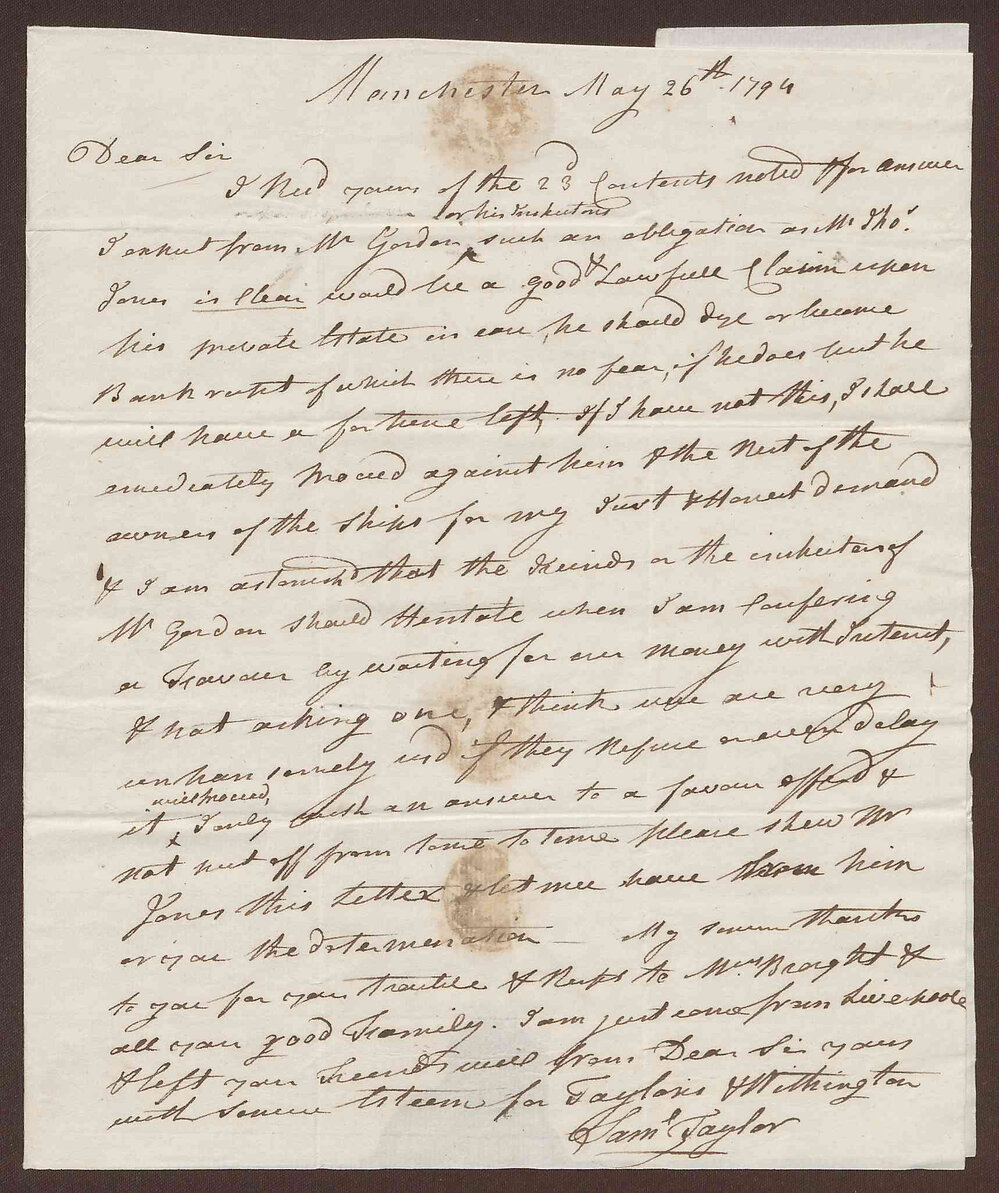 Manchester May 26th 1794
Dear Sir
I Recd yours of the 23d Contents noted & for answer
or his Inheritors
I expect from Mr Gordon such an obligation as Mr Thos.
Jones is Clear would be a good & Lawfull Claim upon
his private Estate in case, he should dye or become
Bankrupt of which there is no fear, if he does but he
will have a fortune left, If I have not this, I shall
emediately Proceed against him & the Rest of the
owners of the Ships for my Just & Honest demand
& I am astonishd that the Freinds or the inheritors of
Mr Gordon should Hesitate when I am Confering
a Favour by waiting for our Money with Interest,
& not asking one, & think we are very
unhansomely usd if they Refuse or even delay
will Proceed,
it, I only wish an answer to a favour offerd &
not put off from time to time please shew Mr
Jones this Letter & let mee have from him
or you the determination — My sincere thanks
to you for your trouble & Respts to Mrs Bright &
all your good Family. I am just come from Liverpoole
& left your Freinds well from Dear Sir yours
with sincere Esteem for Taylors & Withington
Saml Taylor